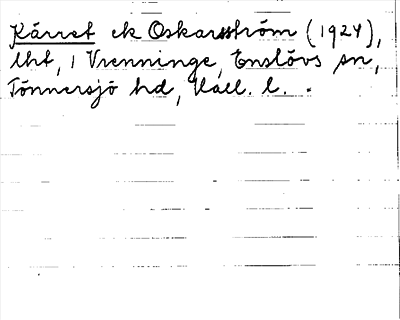 Kärret ek Oskarsström (1924),
lht, i Vrenninge, Enslövs sn,
Tönnersjö hd, Hall. l.